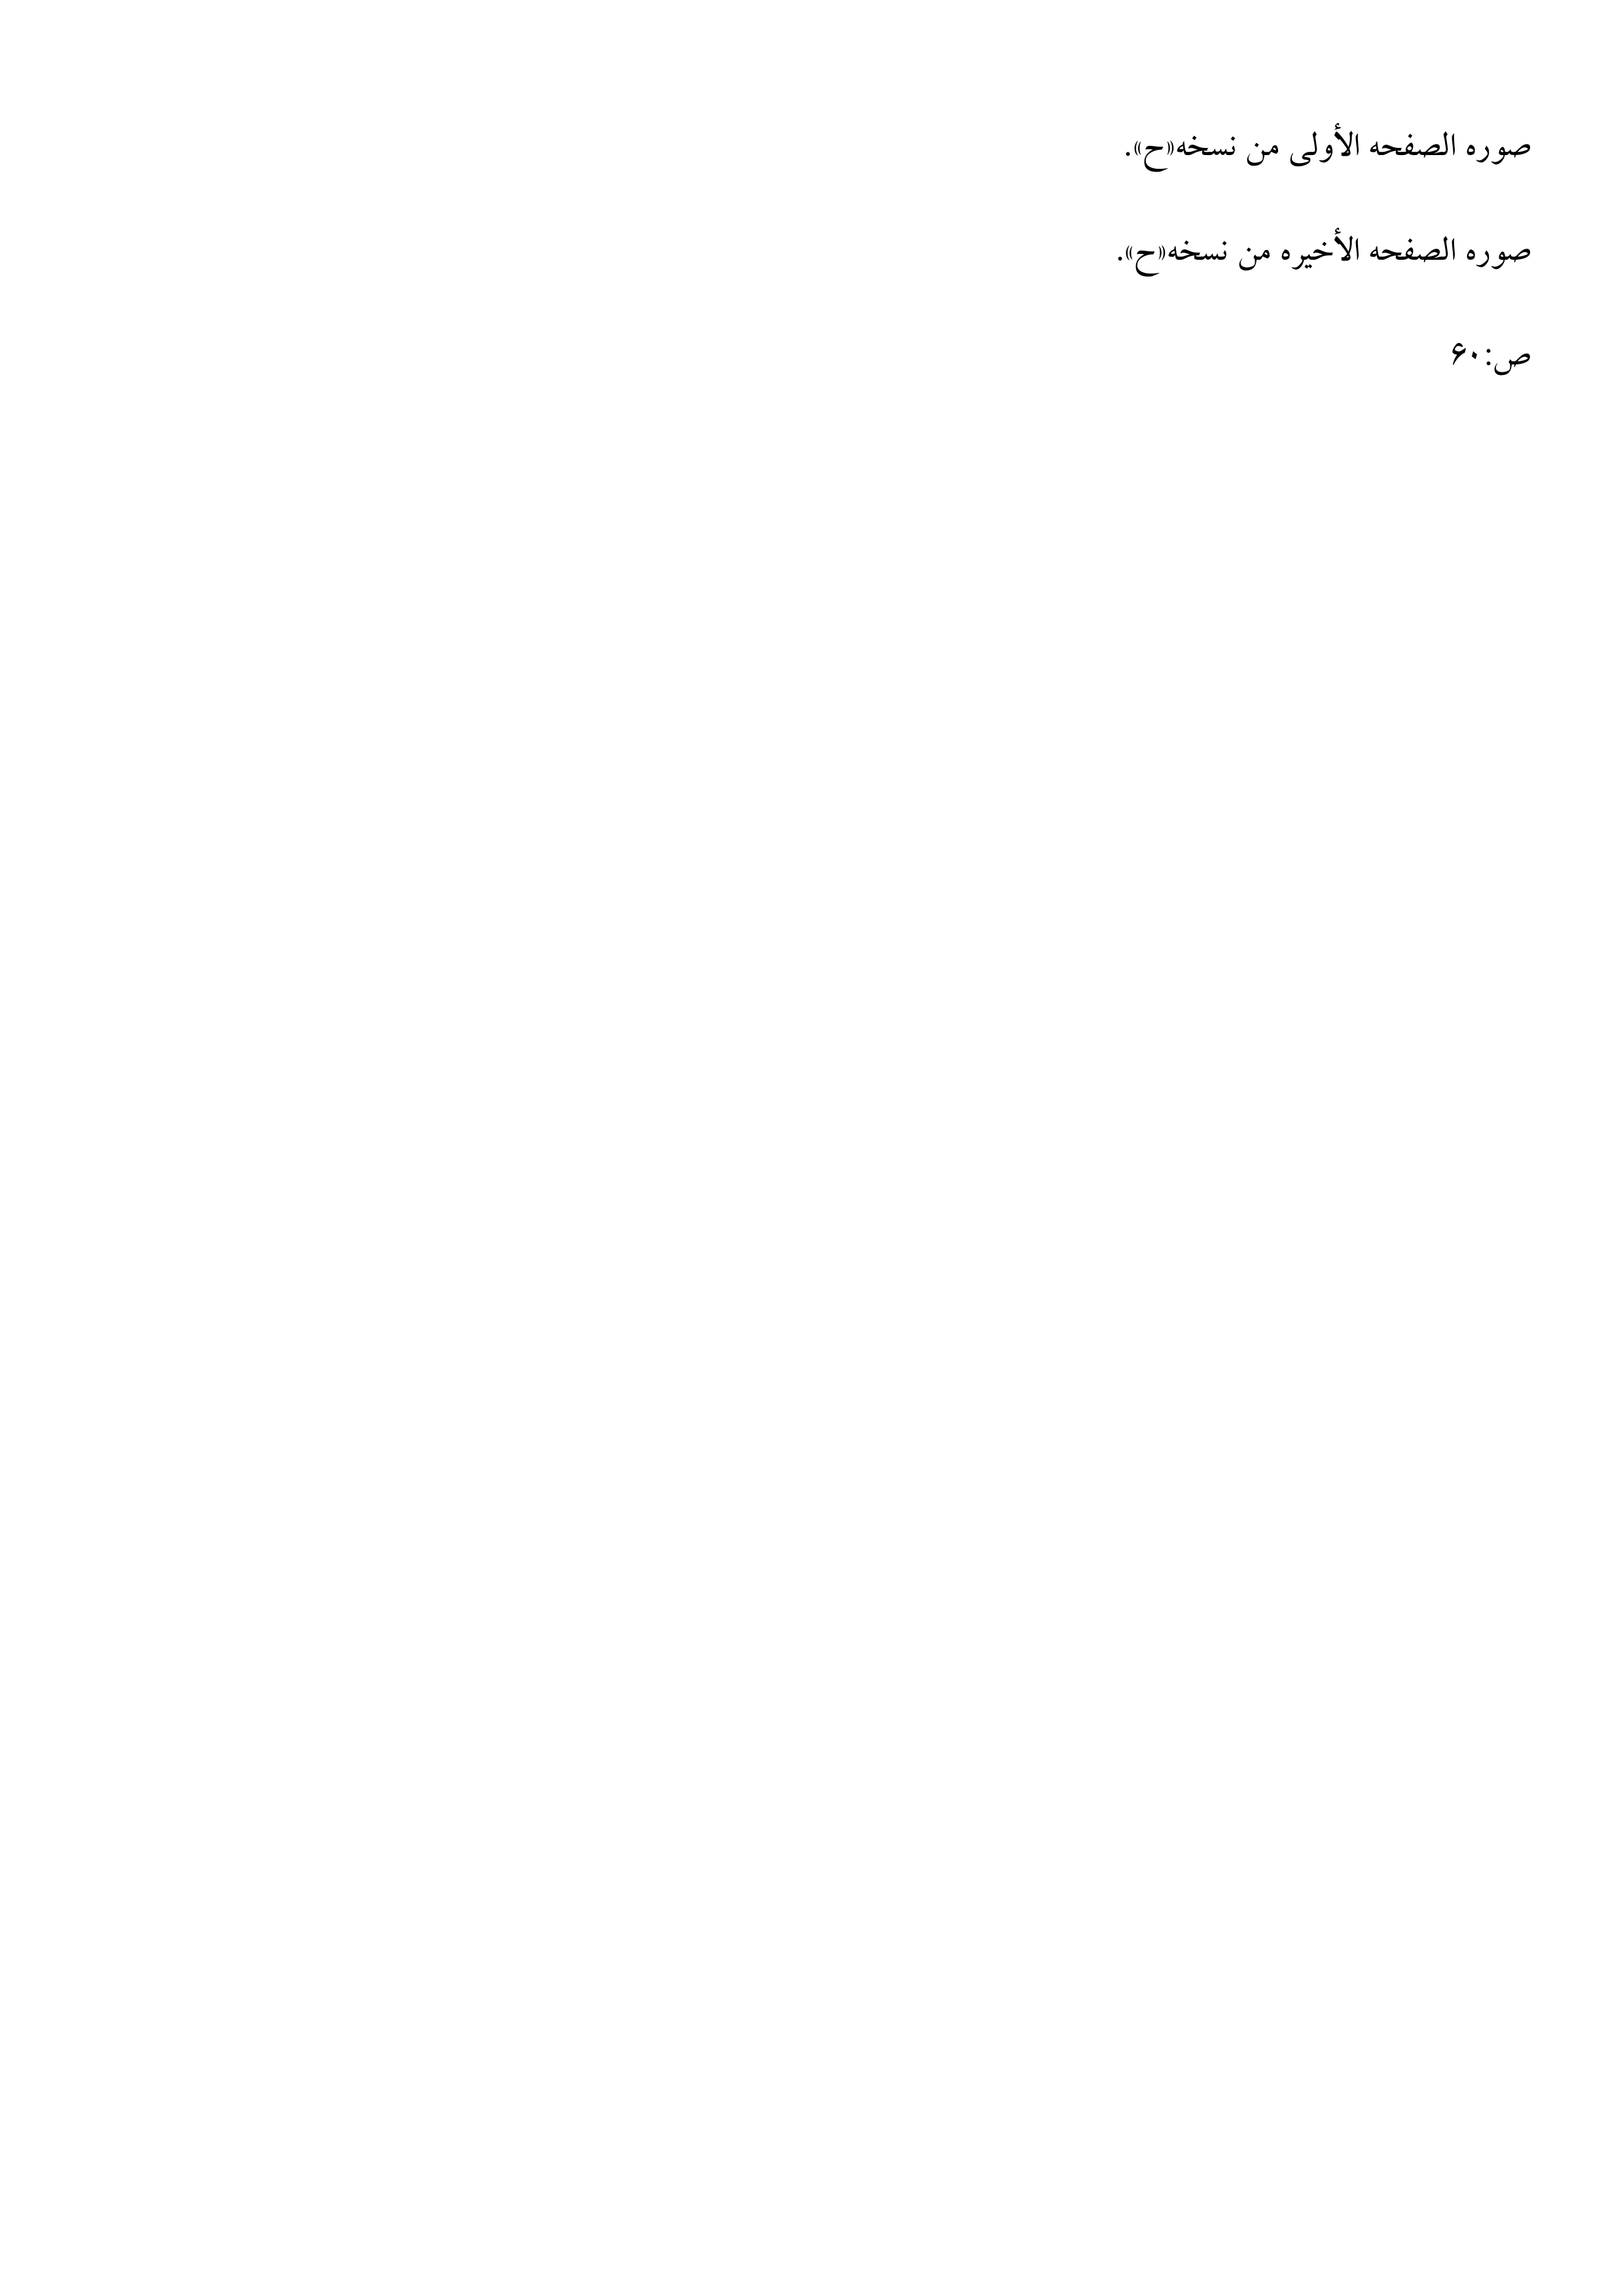 صوره الصفحه الأولى من نسخه«ح».
صوره الصفحه الأخیره من نسخه«ح».
ص:۶۰